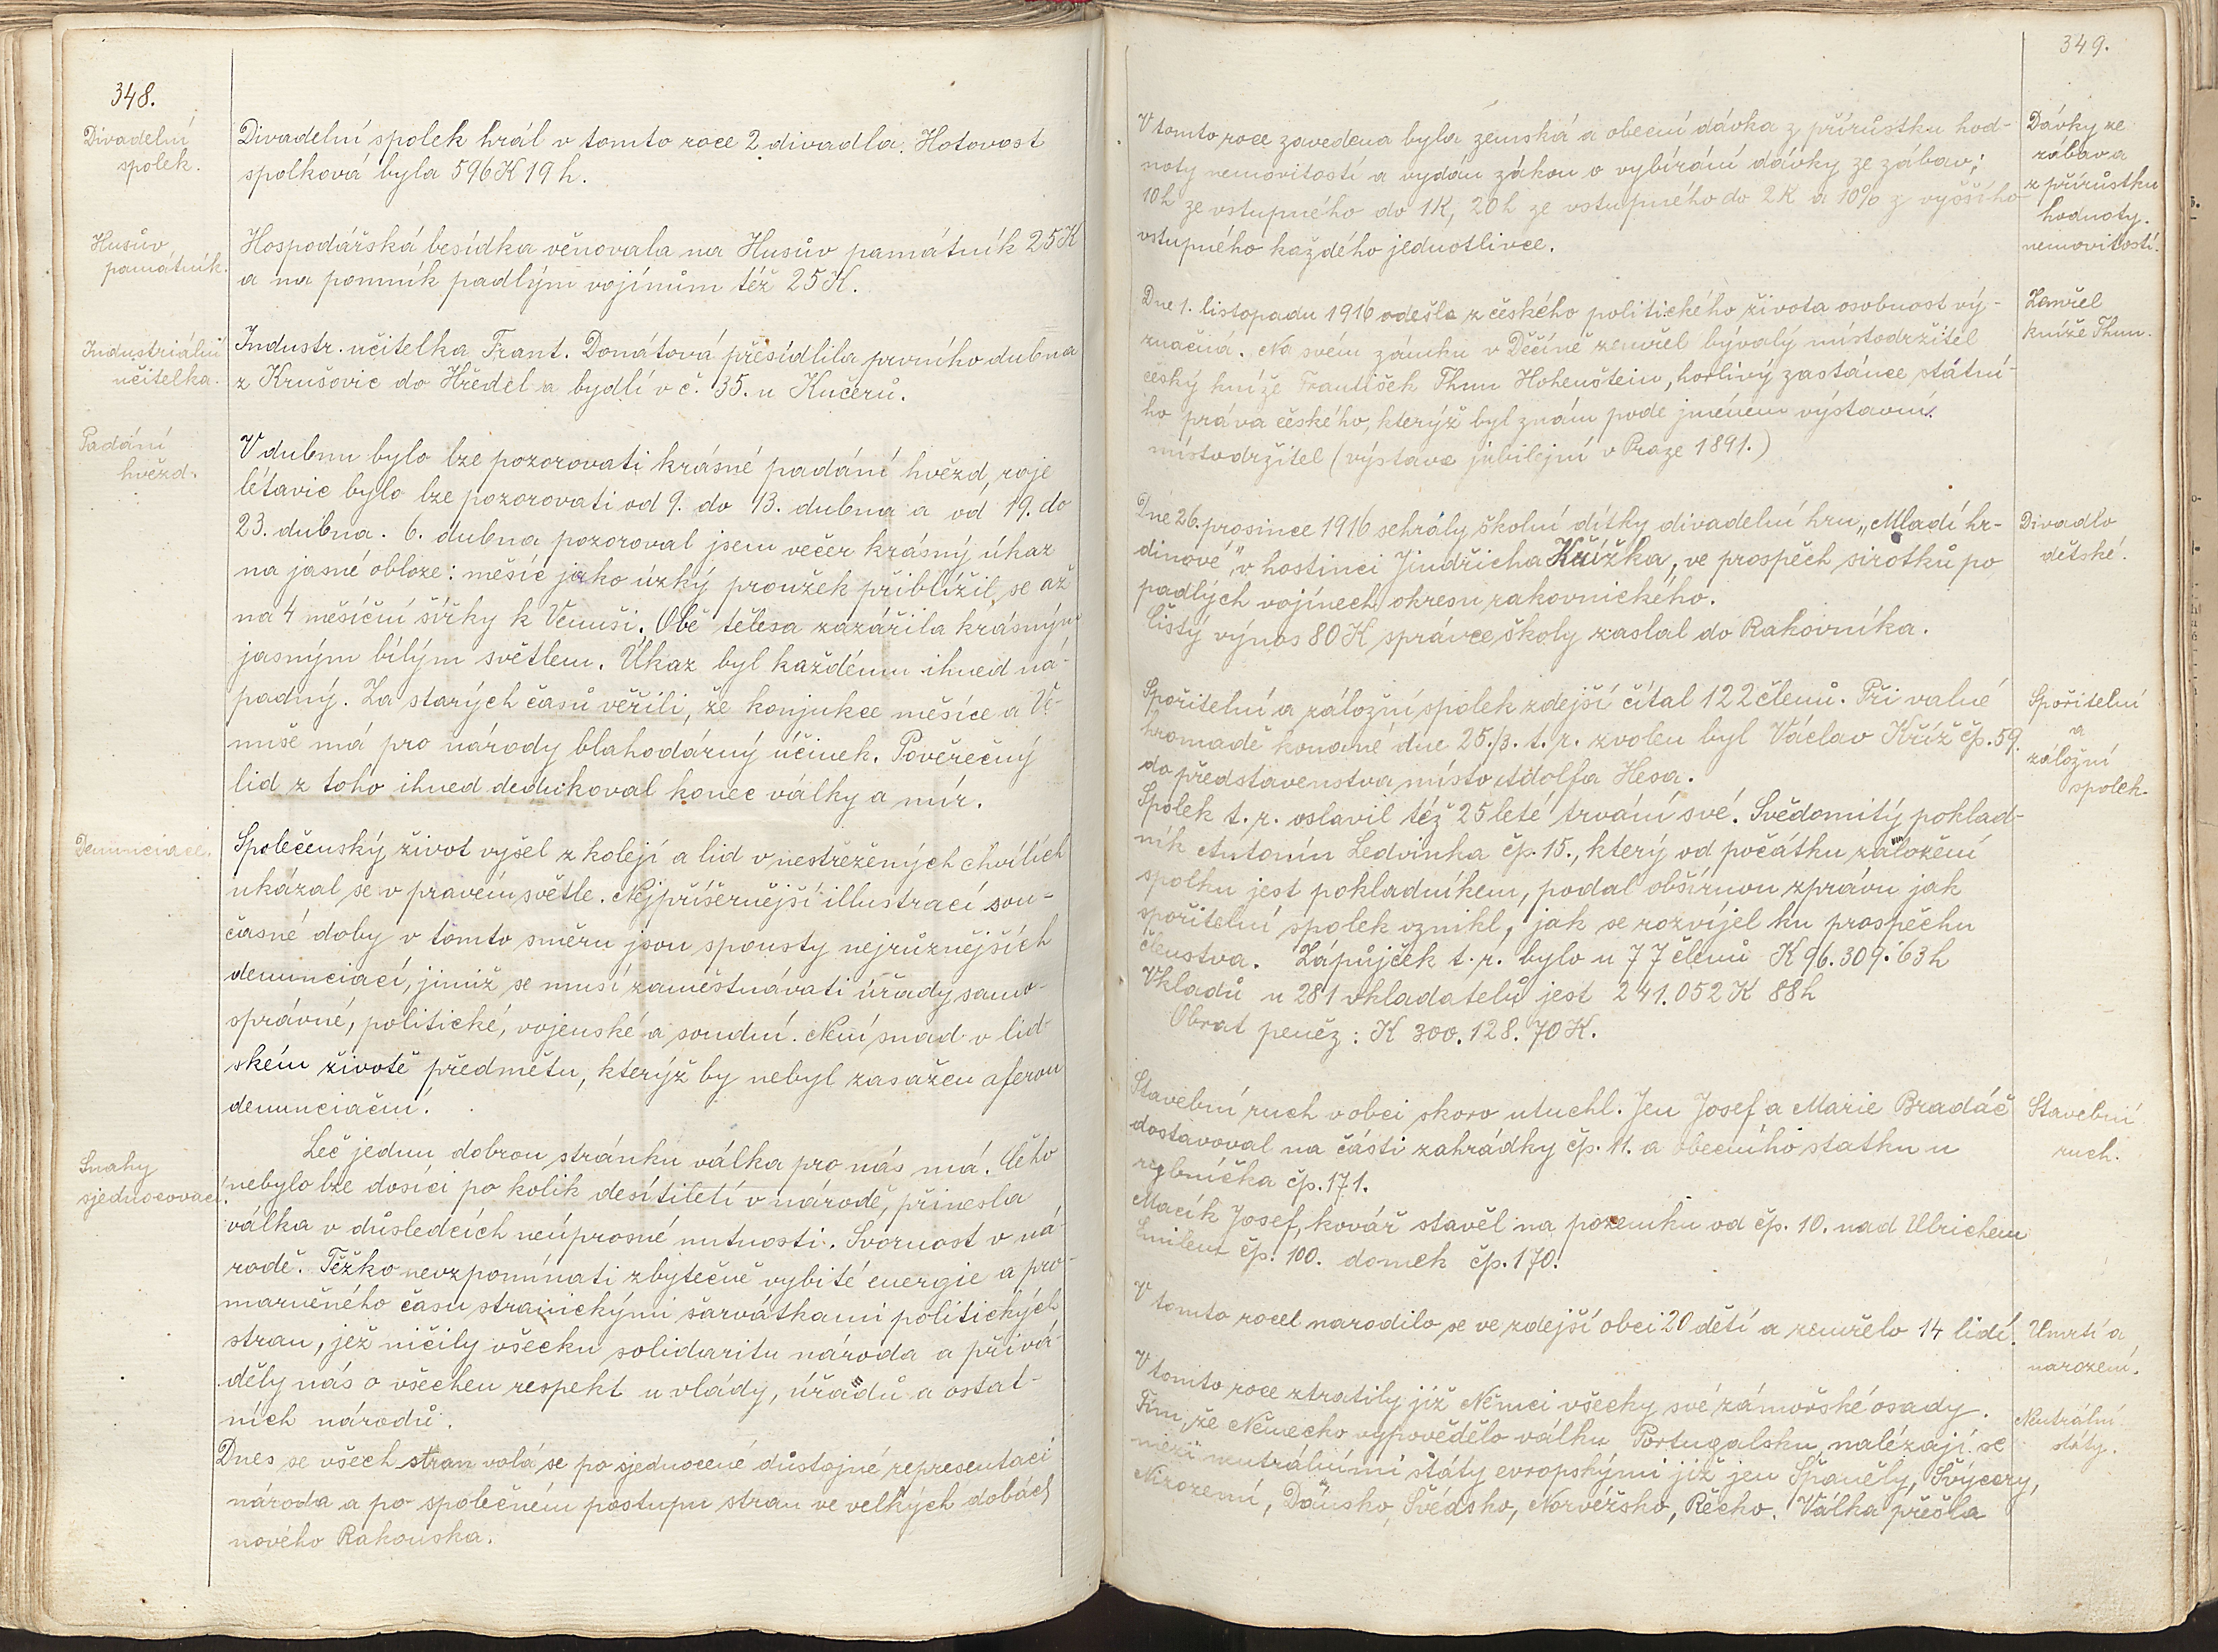 348.
Divadelní
spolek.
Divadelní spolek hrál v tomto roce 2 divadla. Hotovost
spolková byla 596 K 19 h.
Husův
památník.
Hospodářská besídka věnovala na Husův památník 25 K
a na pomník padlým vojínům též 25 K.
Industriální
učitelka.
Industr. učitelka Frant. Donátová přesídlila prvního dubna
z Krušovic do Hředel a bydlí v č. 35. u Kučerů.
Padání
hvězd.
V dubnu bylo lze pozorovati krásné padání hvězd, roje
létavic bylo lze pozorovati od 9. do 13. dubna a od 19. do
23. dubna. 6. dubna pozoroval jsem večer krásný úkaz
na jasné obloze: měsíc jako úzký proužek přiblížil se až
na 4 měsíční šířky k Venuši. Obě tělesa zazářila krásným
jasným bílým světlem. Úkaz byl každému ihned ná-
padný. Za starých časů věřili, že konjukce měsíce a Ve-
nuše má pro národy blahodárný účinek. Pověrečný
lid z toho ihned dedukoval konec války a mír.
Denunciace.
Společenský život vyšel z kolejí a lid v nestřežených chvílích
ukázal se v pravém světle. Nejpříšernější illustrací sou-
časné doby v tomto směru jsou spousty nejrůznějších
denunciací, jimiž se musí zaměstnávati úřady samo-
správné, politické, vojenské a soudní. Není snad v lid-
ském životě předmětu, kterýž by nebyl zasažen aferou
denunciační.
Snahy
sjednocovací.
Leč jednu dobrou stránku válka pro nás má. Čeho
nebylo lze dosíci po kolik desítiletí v národě, přinesla
válka v důsledcích neúprosné nutnosti. Svornost v ná-
rodě. Těžko nevzpomínati zbytečně vybité energie a pro-
marněného času stranickými šarvátkami politických
stran, jež ničily všecku solidaritu národa a přivá-
děly nás o všechen respekt u vlády, úřadů a ostat-
ních národů.
Dnes se všech stran volá se po sjednocené důstojné representaci
národa a po společném postupu stran ve velkých dobách
nového Rakouska.
349.
V tomto roce zavedena byla zemská a obecní dávka z přírůstku hod-
noty nemovitostí a vydán zákon o vybírání dávky ze zábav;
10 h ze vstupného do 1K, 20 h ze vstupného do 2K a 10% z vyššího
vstupného každého jednotlivce.
Dávky ze
zábav a
z přírůstku
hodnoty
nemovitostí.
Dne 1. listopadu 1916 odešla z českého politického života osobnost vý-
značná. Na svém zámku v Děčíně zemřel bývalý místodržitel
český kníže František Thun Hohenštein, horlivý zastánce státní-
ho práva českého, kterýž byl znám pode jménem výstavní
místodržitel (výstava jubilejní v Praze 1891.)
Zemřel
kníže Thun.
Dne 26. prosince 1916 sehrály školní dítky divadelní hru „Mladí hr-
dinové“ v hostinci Jindřicha Křížka, ve prospěch sirotků po
padlých vojínech okresu rakovnického.
Čistý výnos 80 K správce školy zaslal do Rakovníka.
Divadlo
dětské.
Spořitelní a záložní spolek zdejší čítal 122 členů. Při valné
hromadě konané dne 25./3. t. r. zvolen byl Václav Kříž čp. 59.
do představenstva místo Adolfa Hesa.
Spolek t. r. oslavil též 25leté trvání své. Svědomitý poklad-
ník Antonín Ledvinka čp. 15., který od počátku založení
spolku jest pokladníkem, podal obšírnou zprávu jak
spořitelní spolek vznikl, jak se rozvíjel ku prospěchu
členstva. Zápůjček t. r. bylo u 77 členů K 96.309.63 h
Vkladů u 281 vkladatelů jest 241.052 K 88 h
Obrat peněz: K 300.128.70 K.
Spořitelní
a
záložní
spolek.
Stavební ruch v obci skoro utuchl. Jen Josef a Marie Bradáč
dostavoval na části zahrádky čp. 11. a obecního statku u
rybníčka čp. 171.
Macík Josef, kovář stavěl na pozemku od čp. 10. nad Ulrichem
Emilem čp. 100. domek čp. 170.
Stavební
ruch.
V tomto roce narodilo se ve zdejší obci 20 dětí a zemřelo 14 lidí.
Úmrtí a
narození.
V tomto roce ztratily již Němci všecky své zámořské osady.
Tím, že Německo vypovědělo válku Portugalsku, nalézají se
mezi neutrálními státy evropskými již jen Španěly, Švýcary,
Nizozemí, Dánsko, Švédsko, Norvéžsko, Řecko. Válka přešla
Neutrální
státy.